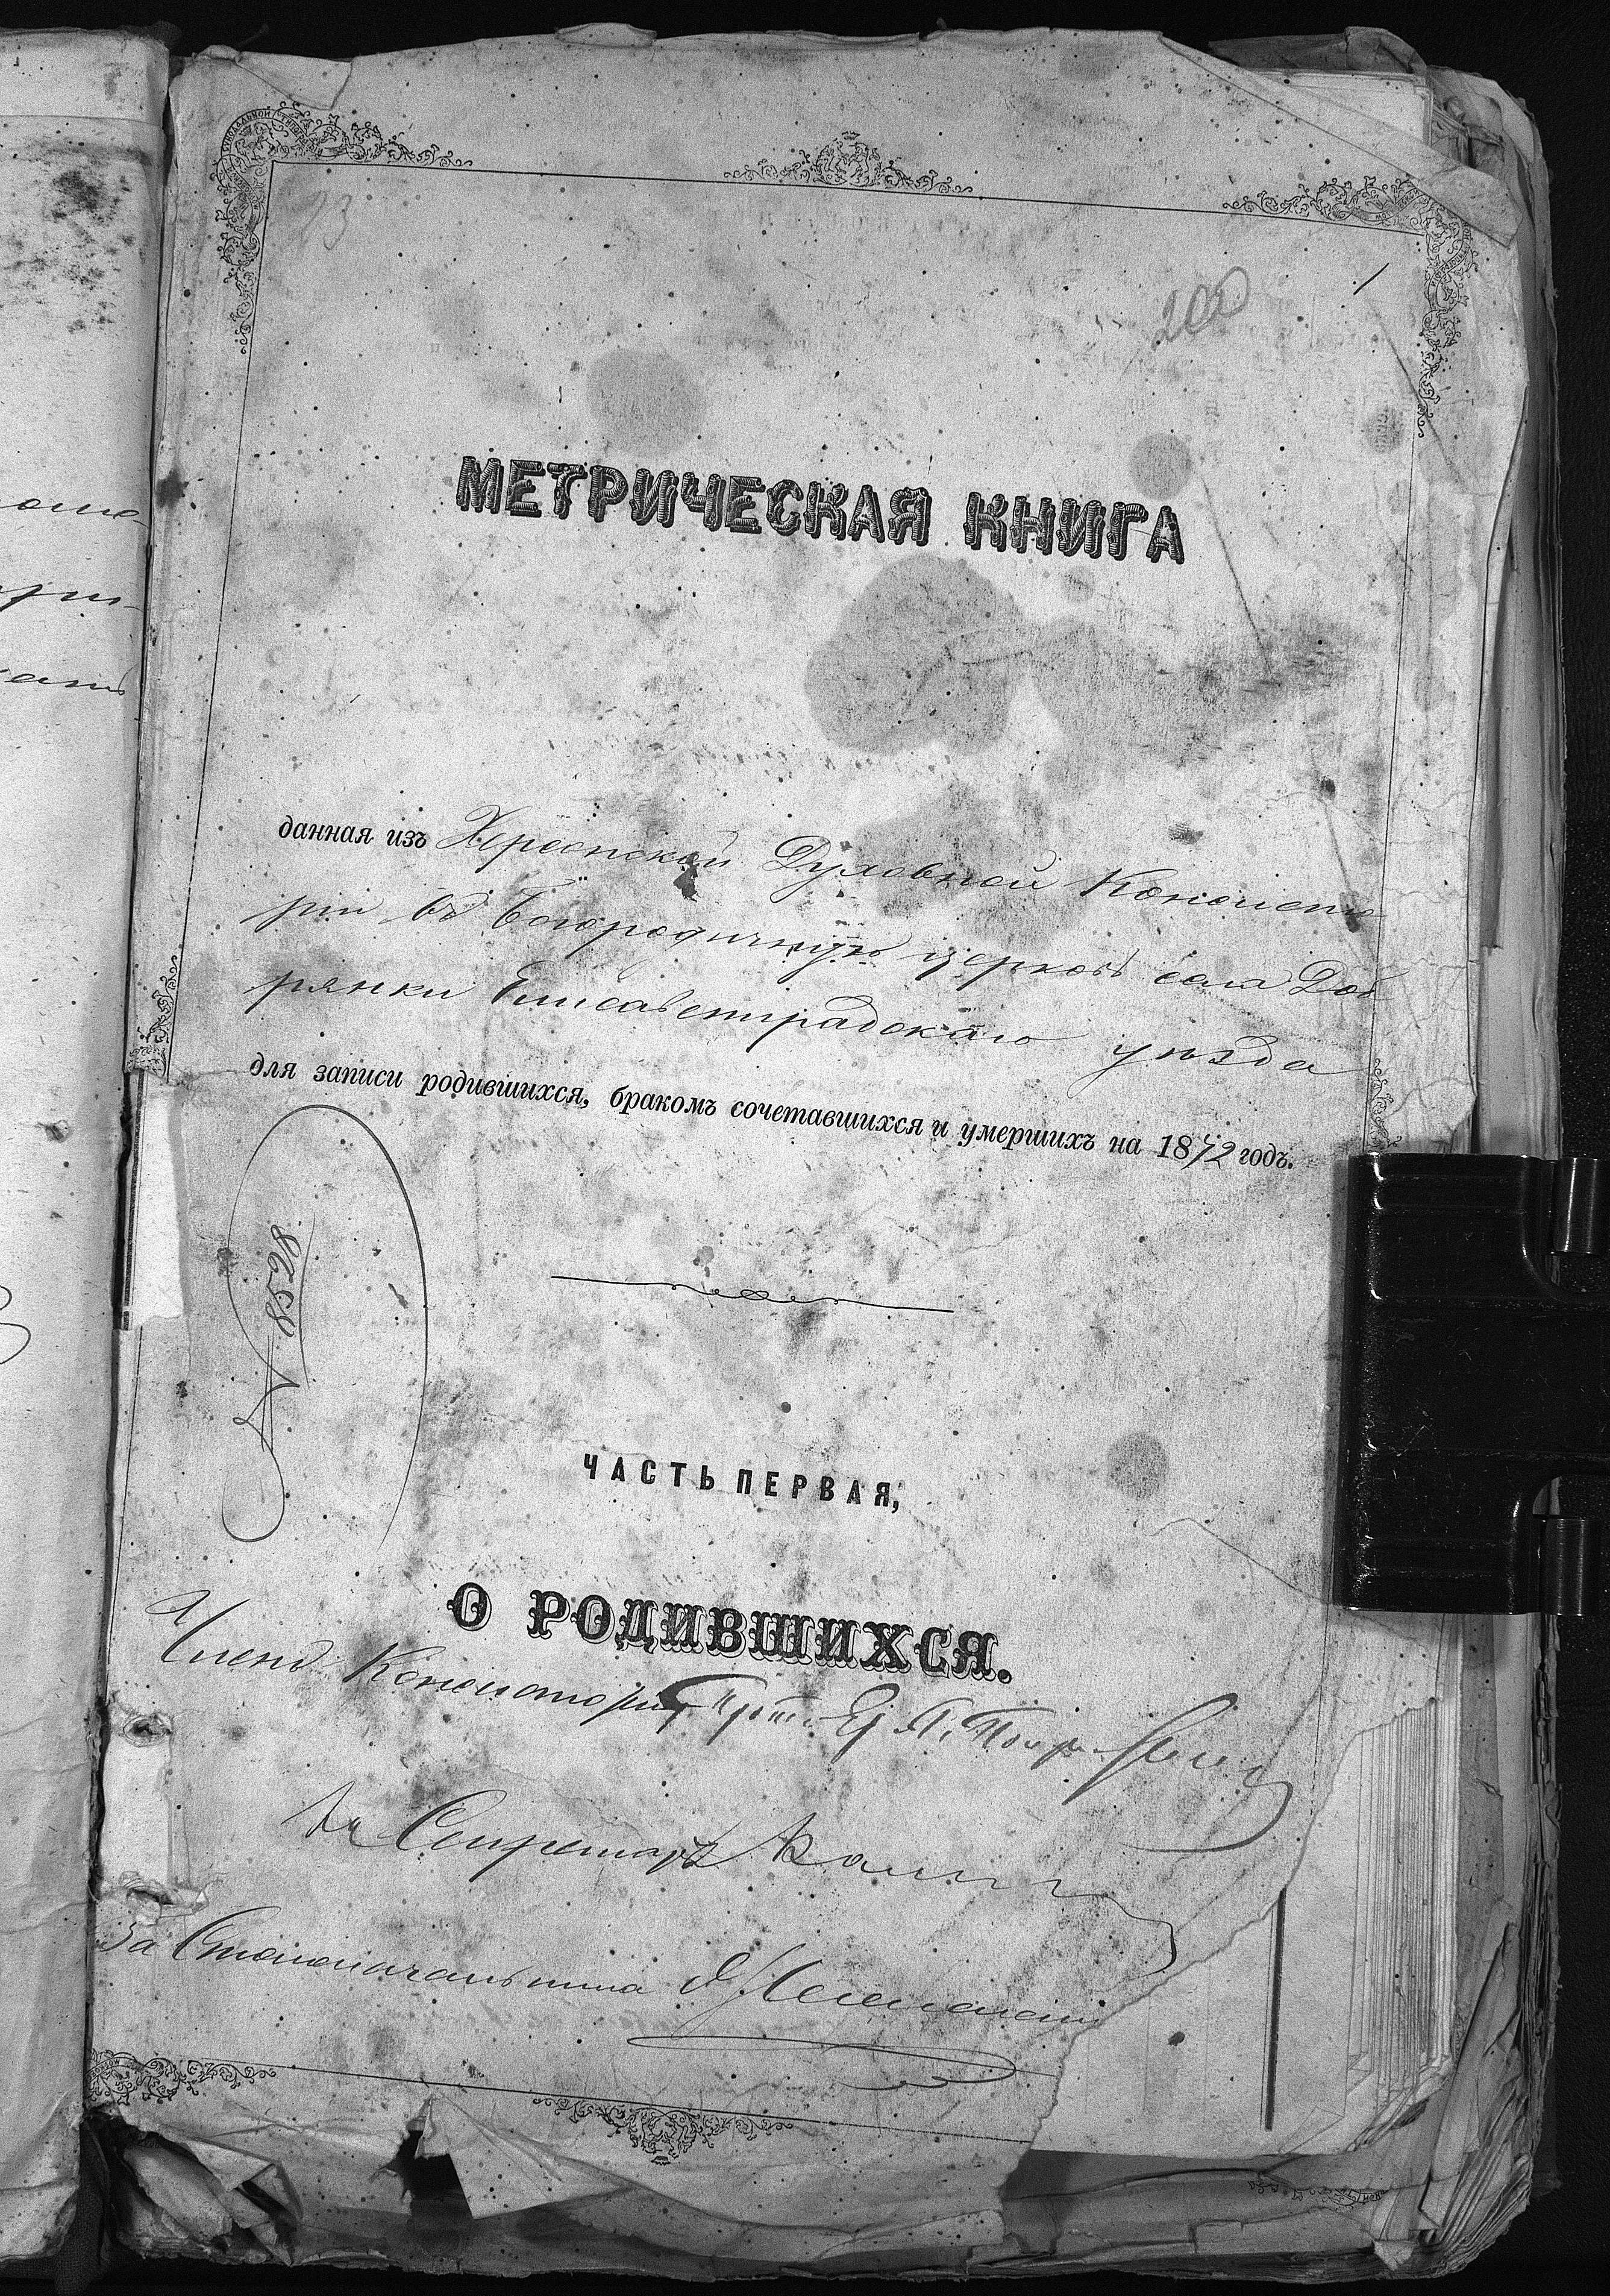 23
200
1
МЕТРИЧЕСКАЯ КНИГА
данная изъ Херсонской Духовной Консисто
ріи въ Богородичную церковь села Доб
рянки Елисаветградскаго уѣзда
для записи родившихся, бракомъ сочетавшихся и умершихъ на 1872 годъ.
8258
ЧАСТЬ ПЕРВАЯ,
О РОДИВШИХСЯ.
Членъ Консисторіи
Секретарь
За Столоначальника